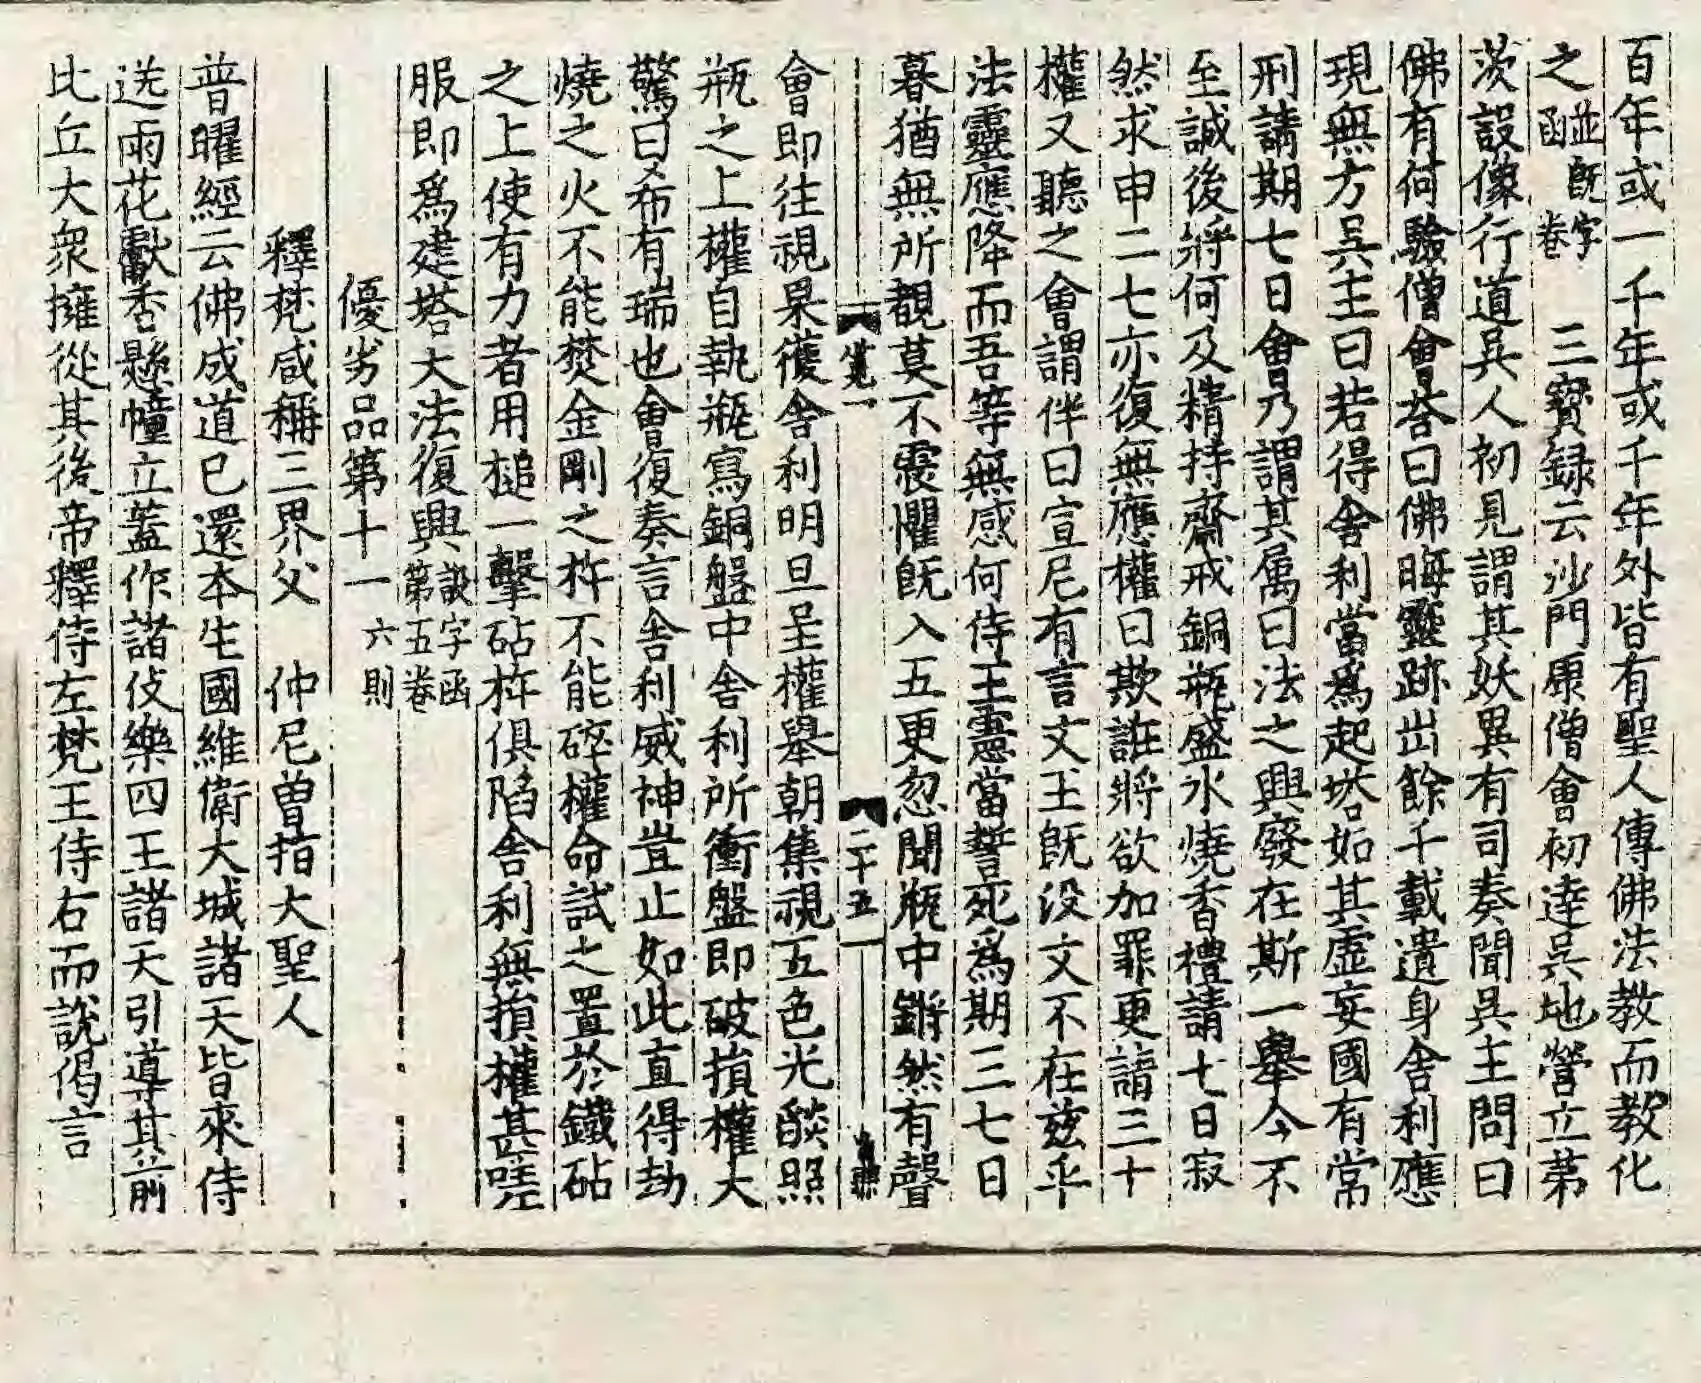 百年或一千年或千年外皆有聖人傳佛法教而教化
之並既字函卷　三寳録云沙門康僧會初達吳地營立茅
茨設像行道吳人初見謂其妖異有司奏聞吳主問曰
佛有何驗僧會荅曰佛晦靈跡出餘千載遺身舍利應
現無方吳主曰若得舍利當爲起塔如其虛妄國有常
刑請期七日會乃謂其属曰法之興廢在斯一舉今不
至誠後將何及精持齋戒銅瓶盛水燒香禮請七日寂
然求申二七亦復無應權曰欺誑將欲加罪更請三十
權又聽之會謂伴曰宣尼有言文王既没文不在兹乎
法靈應降而吾等無感何侍王憲當誓死爲期三七日
暮猶無所覩莫不震懼既入五更忽聞瓶中鏘然有聲
二十五
會即往視果獲舍利明旦呈權舉朝集視五色光燄照
瓶之上權自執瓶寫銅盤中舍利所衝盤即破損權大
驚曰希有瑞也會復奏言舍利威神豈止如此直得劫
燒之火不能焚金剛之杵不能碎權命試之置於鐵砧
之上使有力者用槌一擊砧杵俱陷舍利無損權甚嗟
服即爲建塔大法復興設字函第五卷
優劣品第十一　六則
釋梵咸稱三界父　仲尼曾指大聖人
普曜經云佛成道已還本生國維衛大城諸天皆來侍
送雨花獻香懸幢立蓋作諸伎樂四王諸天引導其前
比丘大衆擁從其後帝釋侍左梵王侍右而說偈言